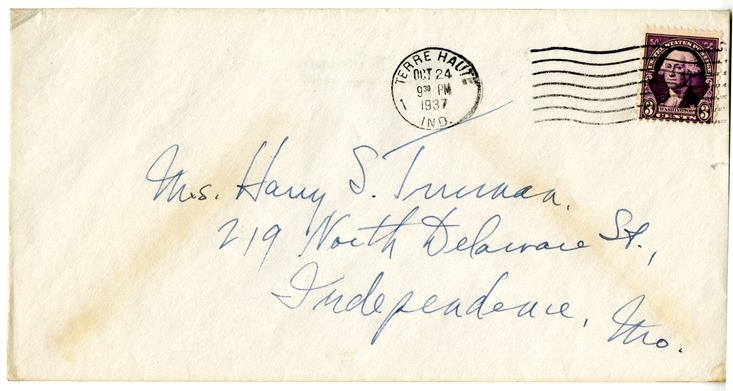 TERRE HAUTE
OCT 24
9 30 PM
1937
1 IND.
UNITED STATES POSTAGE
3 WASHINGTON 3
CENTS
Mrs. Harry S. Truman,
219 North Delaware St.,
Independence, Mo.